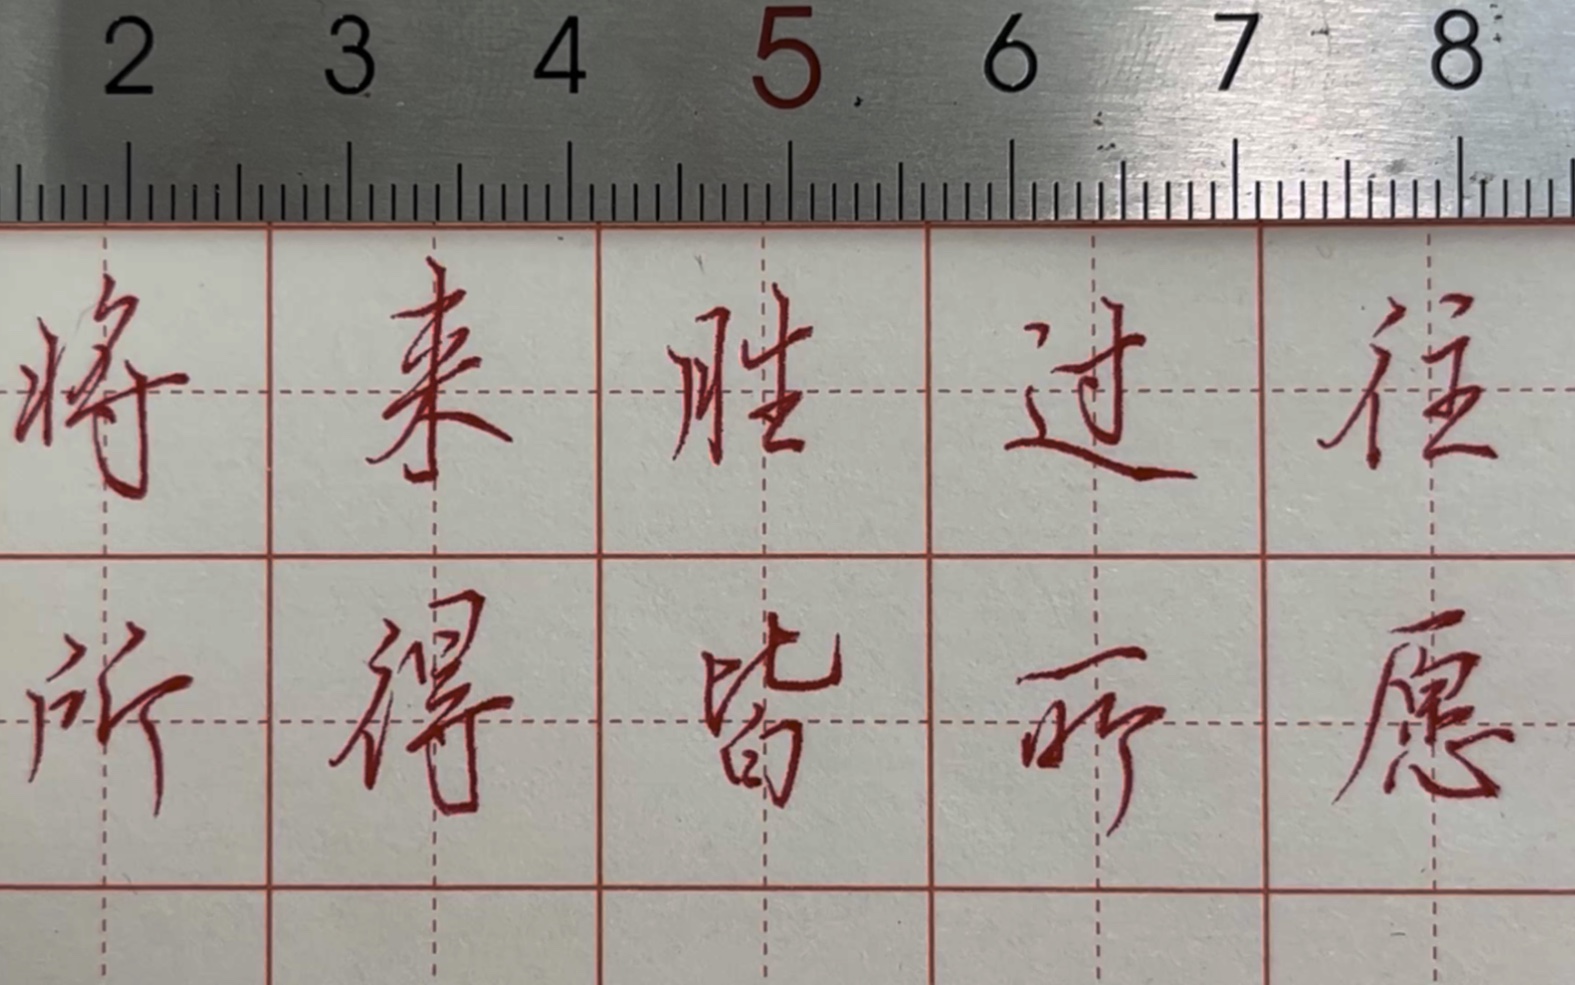 2 3 4 5 6 7 8
将来胜过往
所得皆所愿